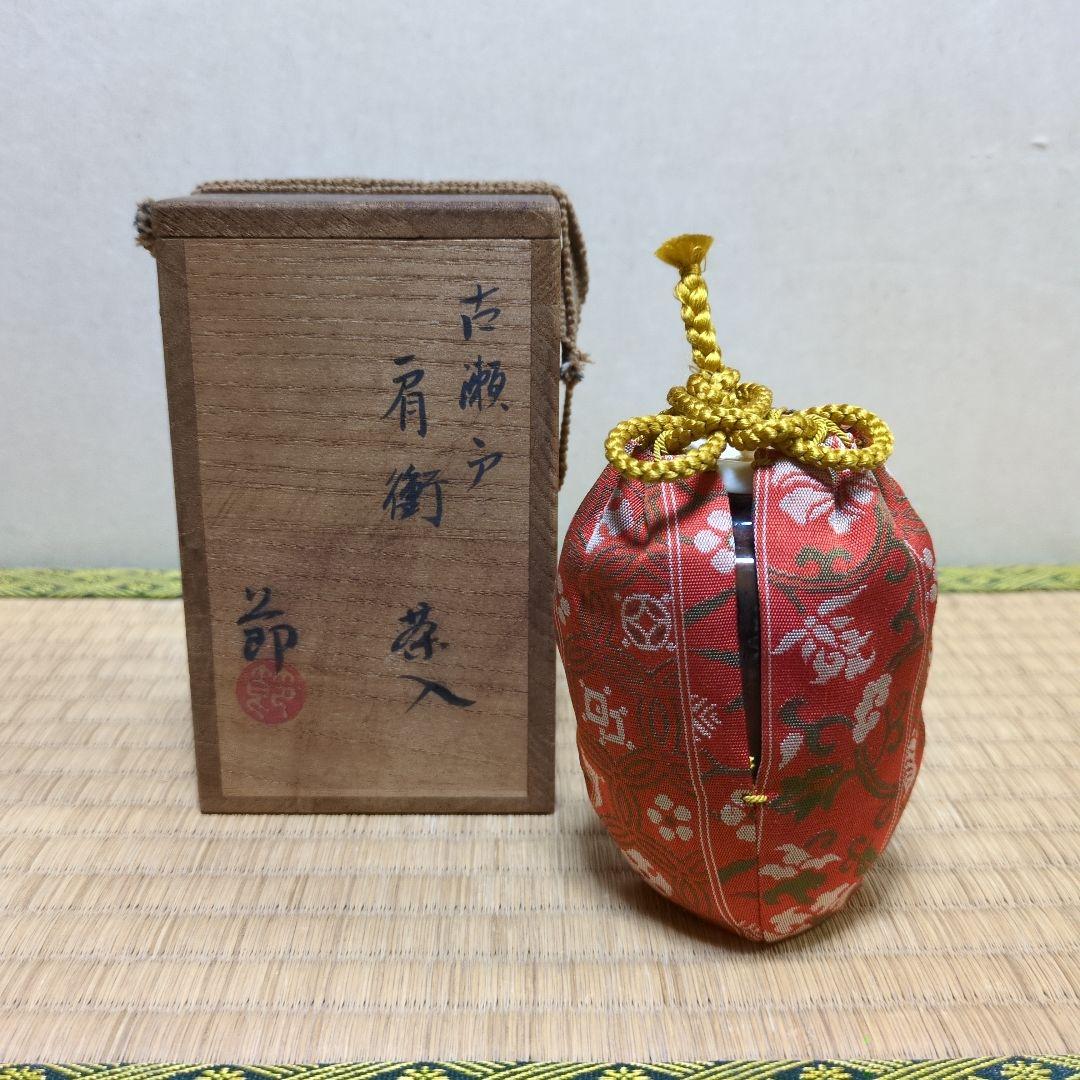 古瀬戸
肩衝 茶入
節